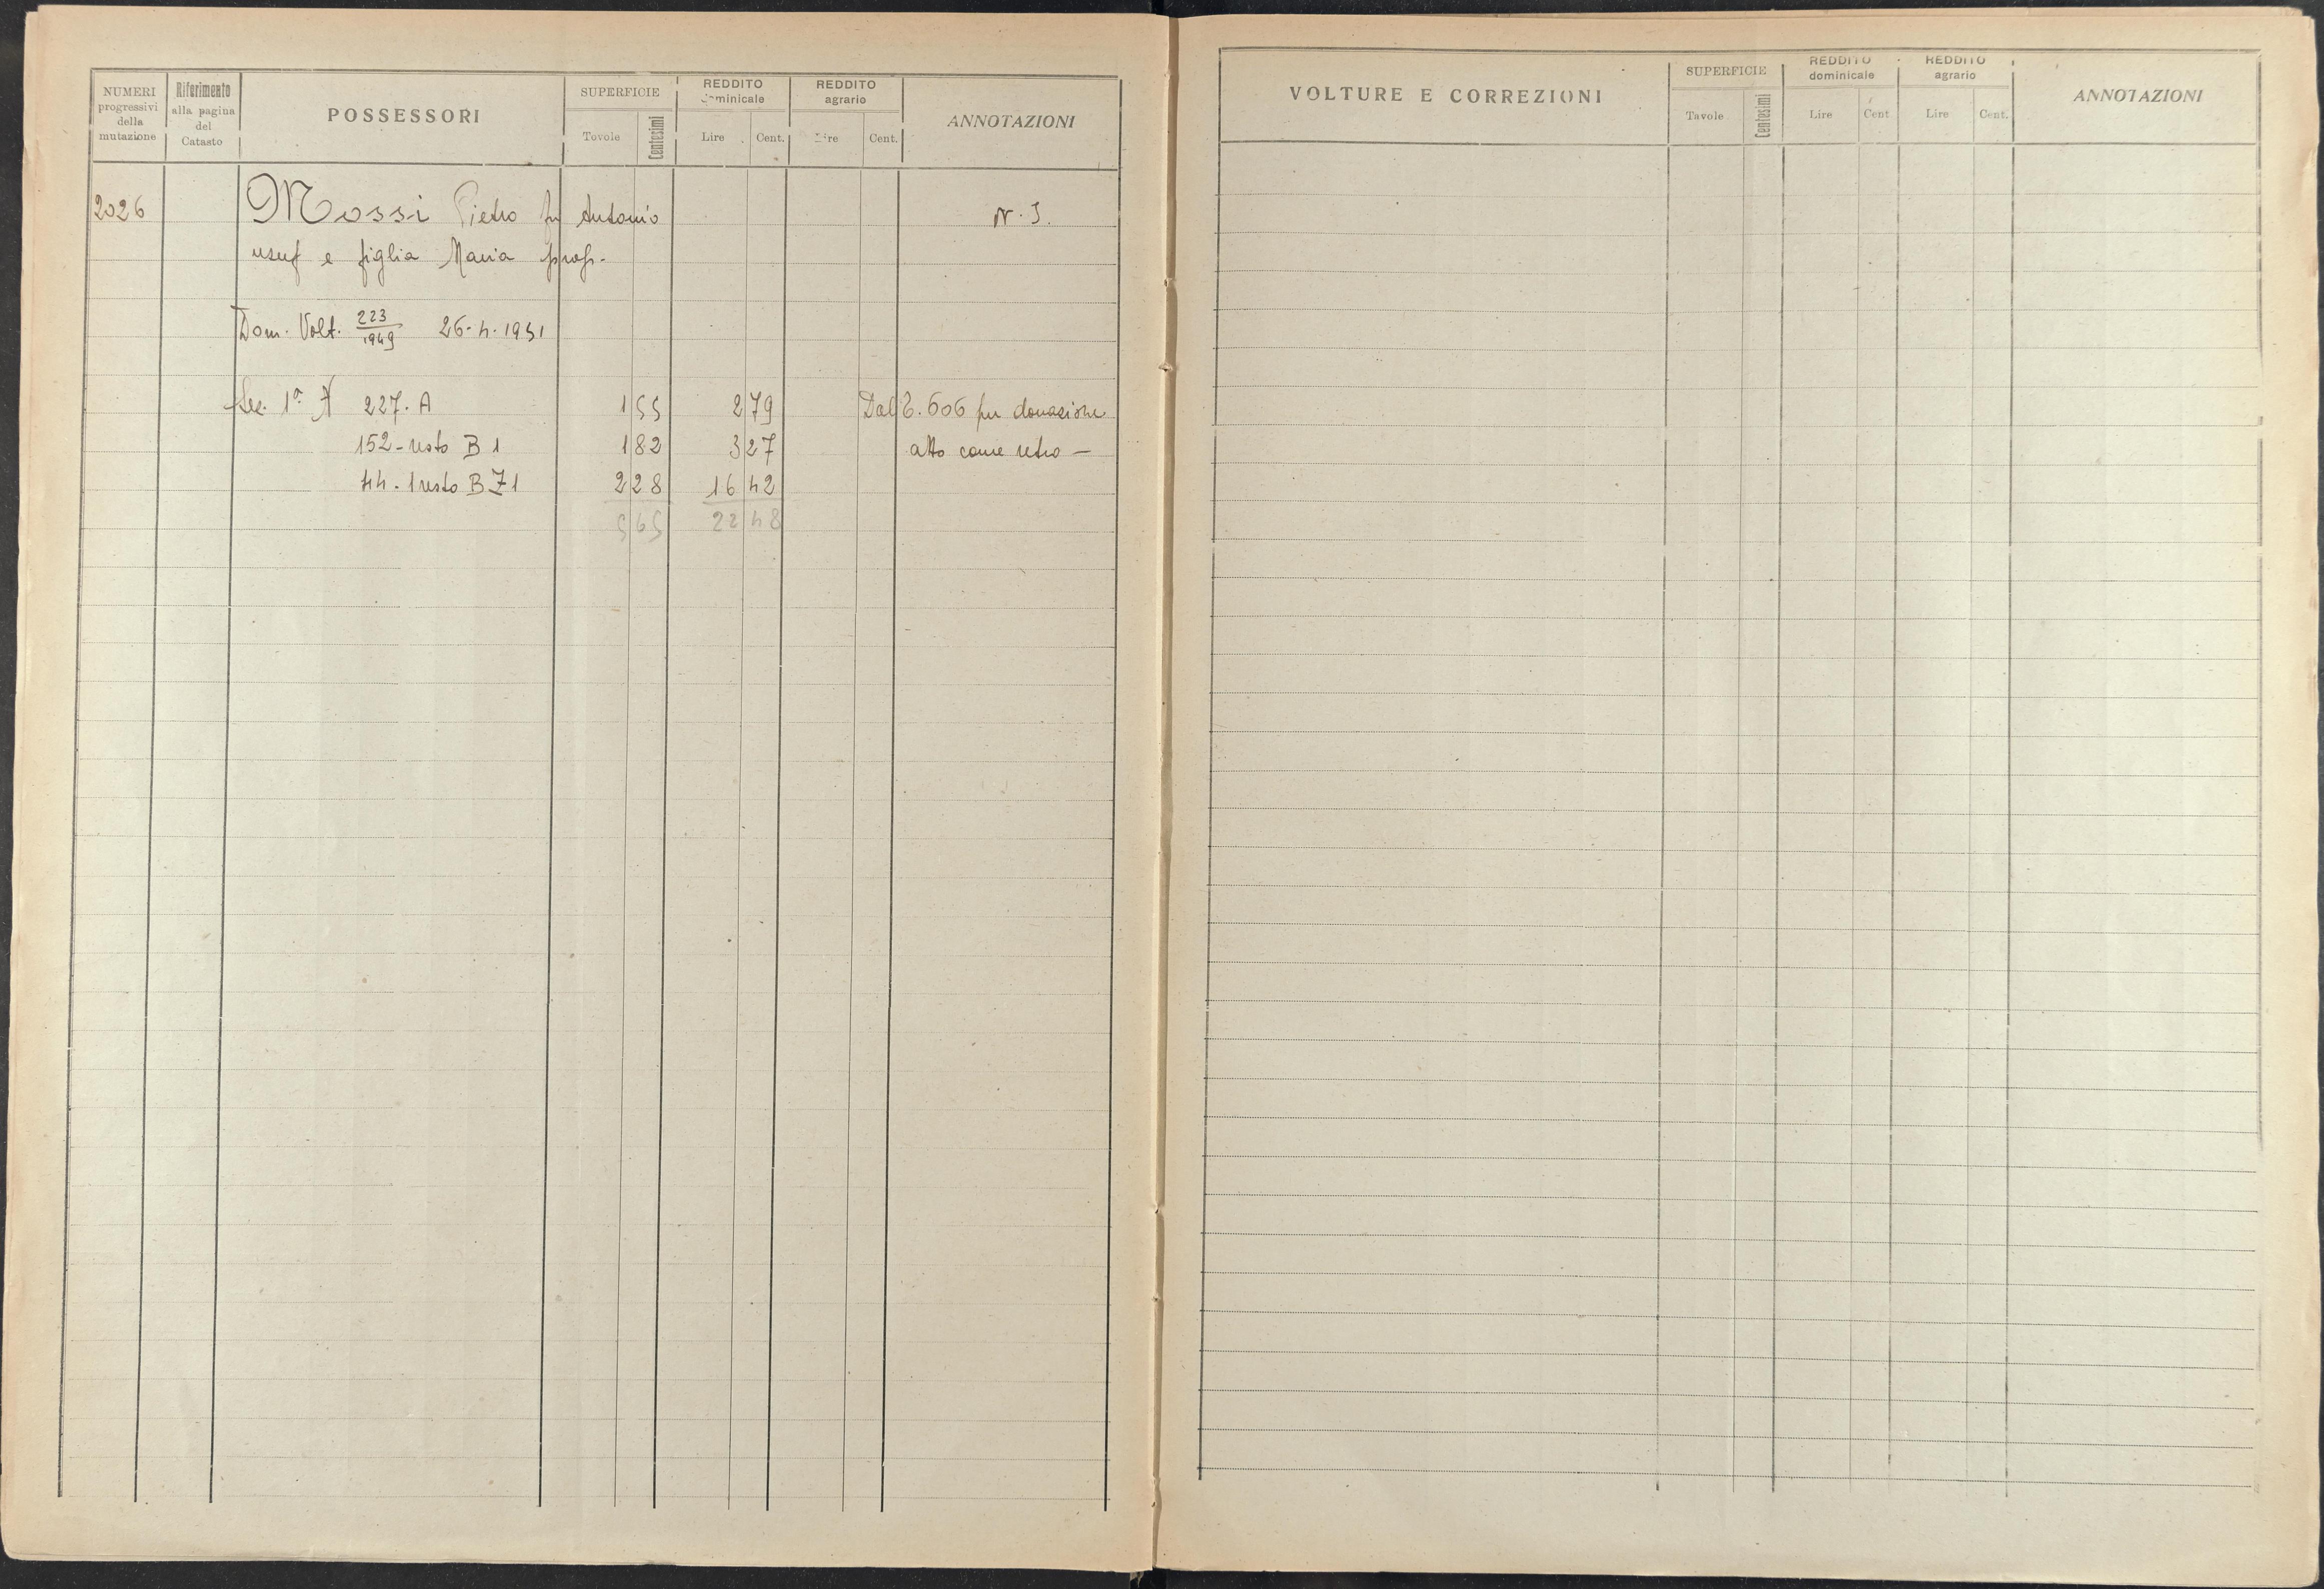 NUMERI progressivi della mutazione
Riferimento alla pagina del Catasto
POSSESSORI
SUPERFICIE
Tovole
Centesimi
REDDITO dominicale
Lire
Cent.
REDDITO agrario
Lire
Cent.
ANNOTAZIONI
2026 Mossi Pietro fu Antonio N. I.
usuf e figlia Maria prop.
Dom. Volt. 223/1949 26-4-1951
Sec. 1ª A 227. A 1 55 2 79 Dal 2.606 per donazione
152-resto B 1 1 82 3 27 atto come retro —
44. 1 resto B Z 1 2 28 16 42
5 65 22 48
VOLTURE E CORREZIONI
SUPERFICIE
Tavole
Centesimi
REDDITO dominicale
Lire
Cent
REDDITO agrario
Lire
Cent.
ANNOTAZIONI